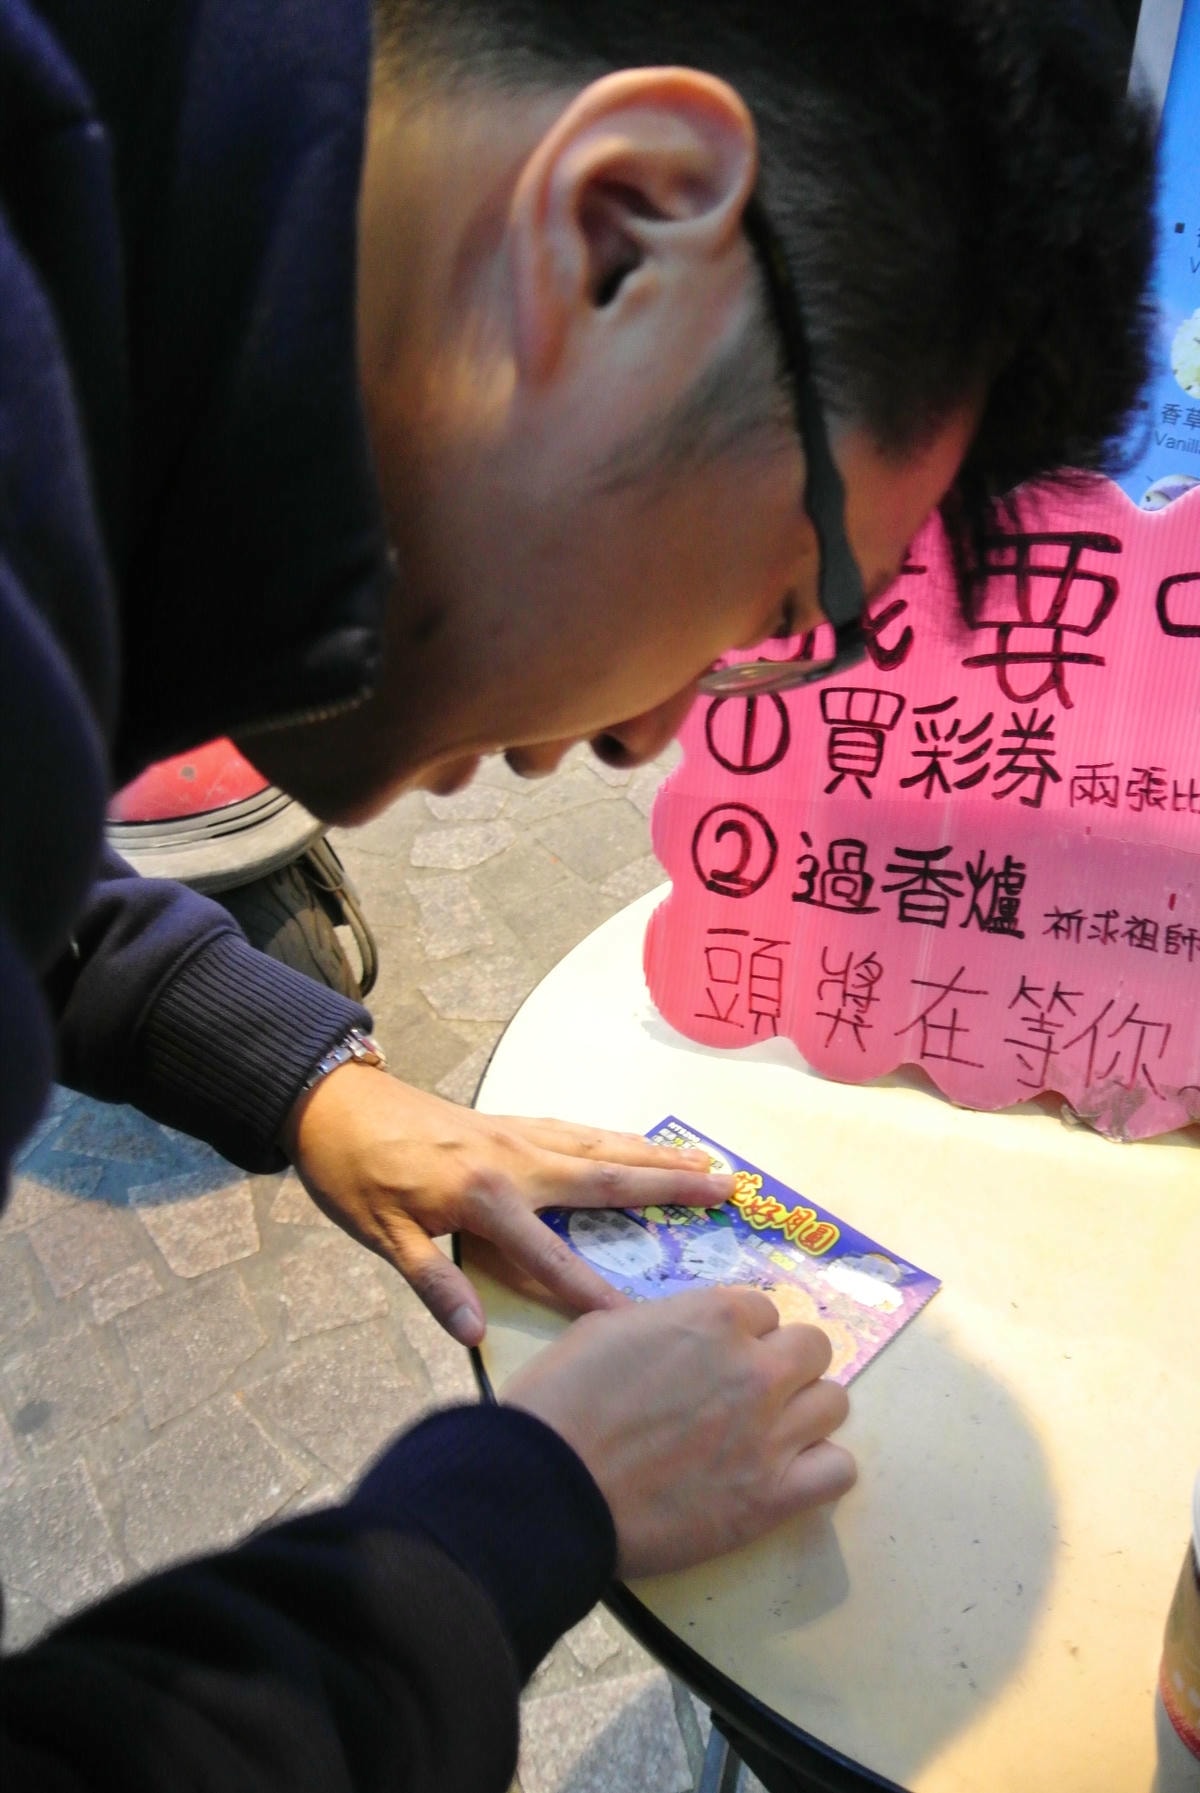 香草
Vanill
我要中
① 買彩券 兩張比
② 過香爐 祈求祖師
頭獎在等你
NT$200
花好月圓